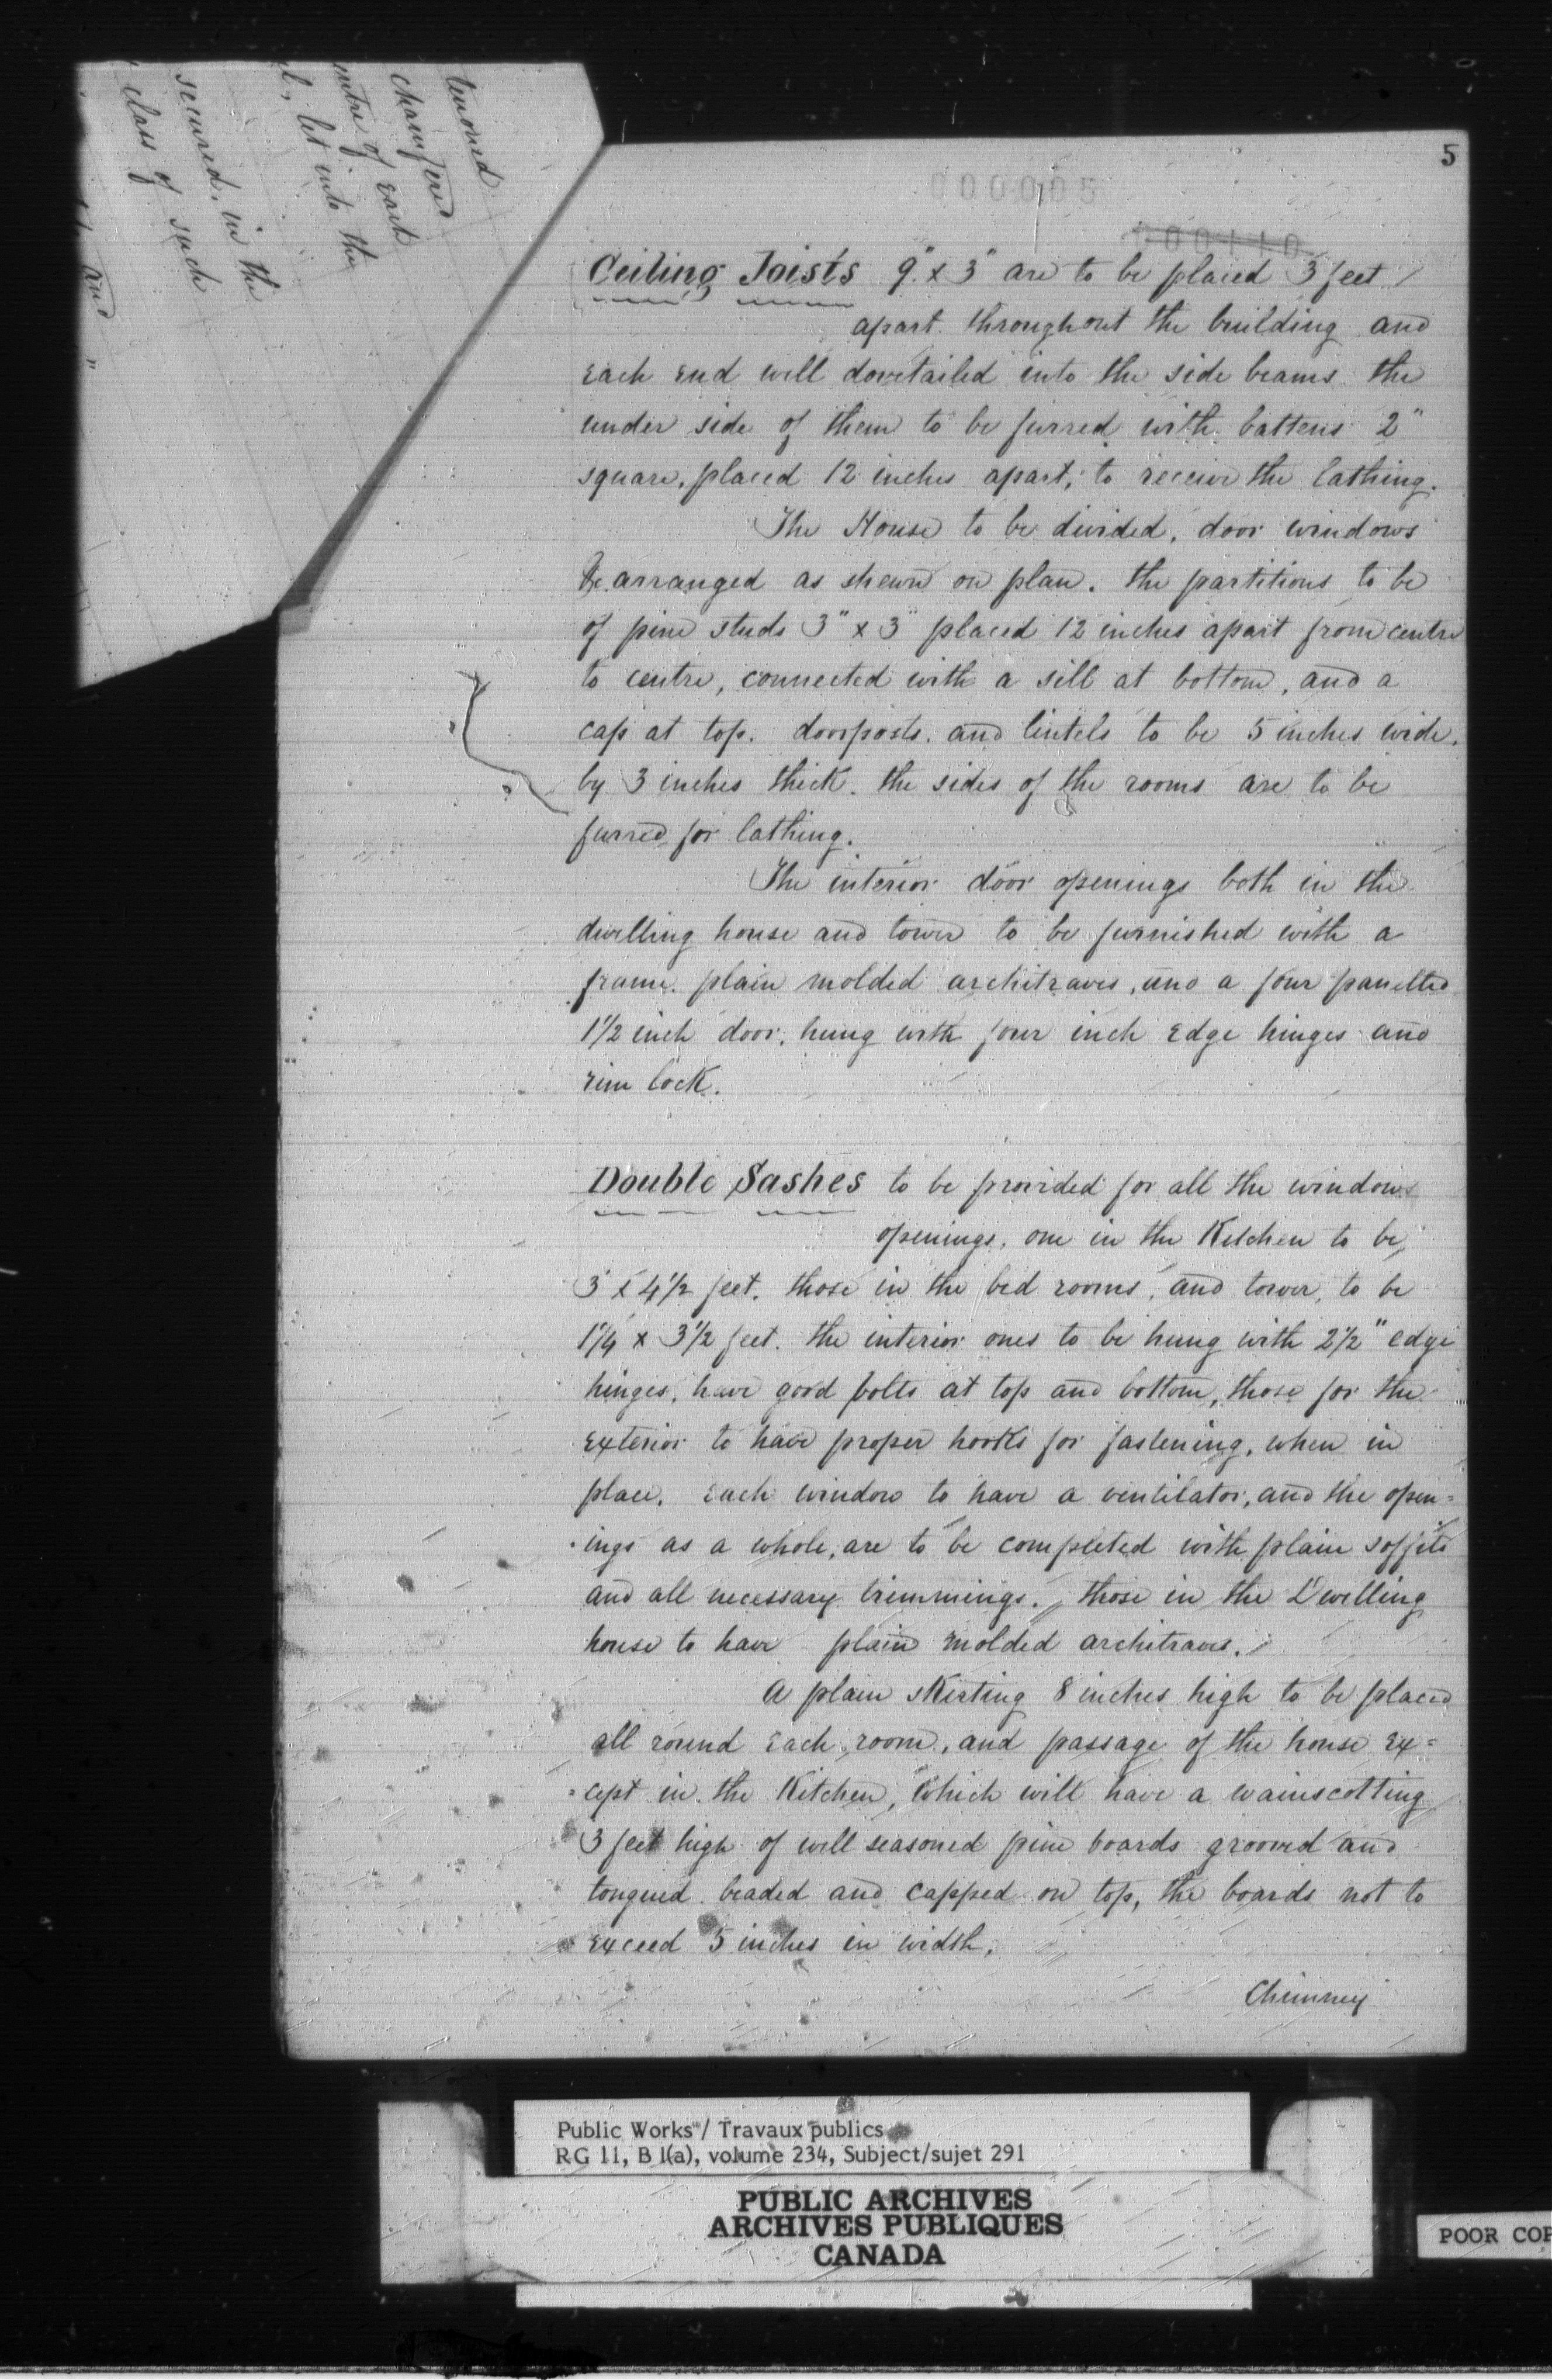 tenoned
chamfered
entre of each
l, let into the
secured, in the
class of such
and
"
5
000005
000110
Ceiling Joists 9" x 3" are to be placed 3 feet
apart throughout the building and
each end well dovetailed into the side beams the
under side of them to be furred with battens 2"
square, placed 12 inches apart, to receive the lathing.
The House to be divided, door windows
&c. arranged as shewn on plan. the partitions to be
of pine studs 3" x 3" placed 12 inches apart from centre
to centre, connected with a sill at bottom, and a
cap at top. doorposts and lintels to be 5 inches wide.
by 3 inches thick. the sides of the rooms are to be
furred for lathing.
The interior door openings both in the
dwelling house and tower to be furnished with a
frame. plain molded architraves, and a four panelled
1 1/2 inch door, hung with four inch edge hinges and
rim lock.
Double Sashes to be provided for all the windows
openings, one in the Kitchen to be
3 x 4 1/2 feet. those in the bed rooms, and tower, to be
1 3/4 x 3 1/2 feet. the interior ones to be hung with 2 1/2" edge
hinges, have good bolts at top and bottom, those for the
exterior to have proper hooks for fastening, when in
place. Each window to have a ventilator, and the open=
ings as a whole, are to be completed with plain soffits
and all necessary trimmings. those in the Dwelling
house to have plain molded architraves.
A plain skirting 8 inches high to be placed
all round each room, and passage of the house ex=
=cept in the Kitchen, which will have a wainscotting
3 feet high of well seasoned pine boards grooved and
tongued beaded and capped on top, the boards not to
exceed 5 inches in width.
Chimney
Public Works / Travaux publics
RG 11, B 1(a), volume 234, Subject/sujet 291
PUBLIC ARCHIVES
ARCHIVES PUBLIQUES
CANADA
POOR COP